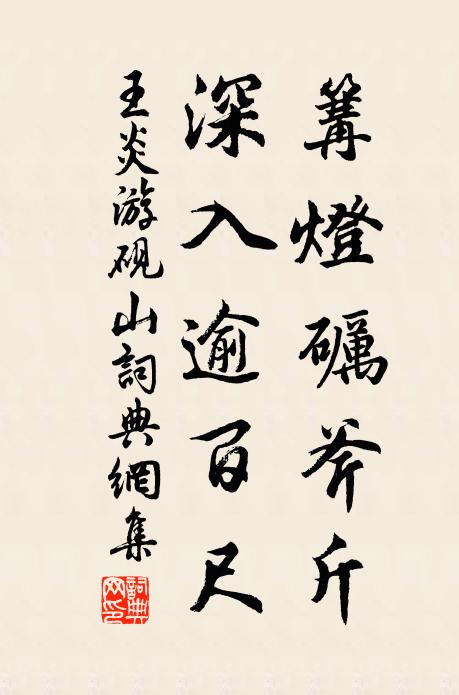 篝燈礪斧斤
深入逾百尺
王炎游硯山詞典網集
詞典網印